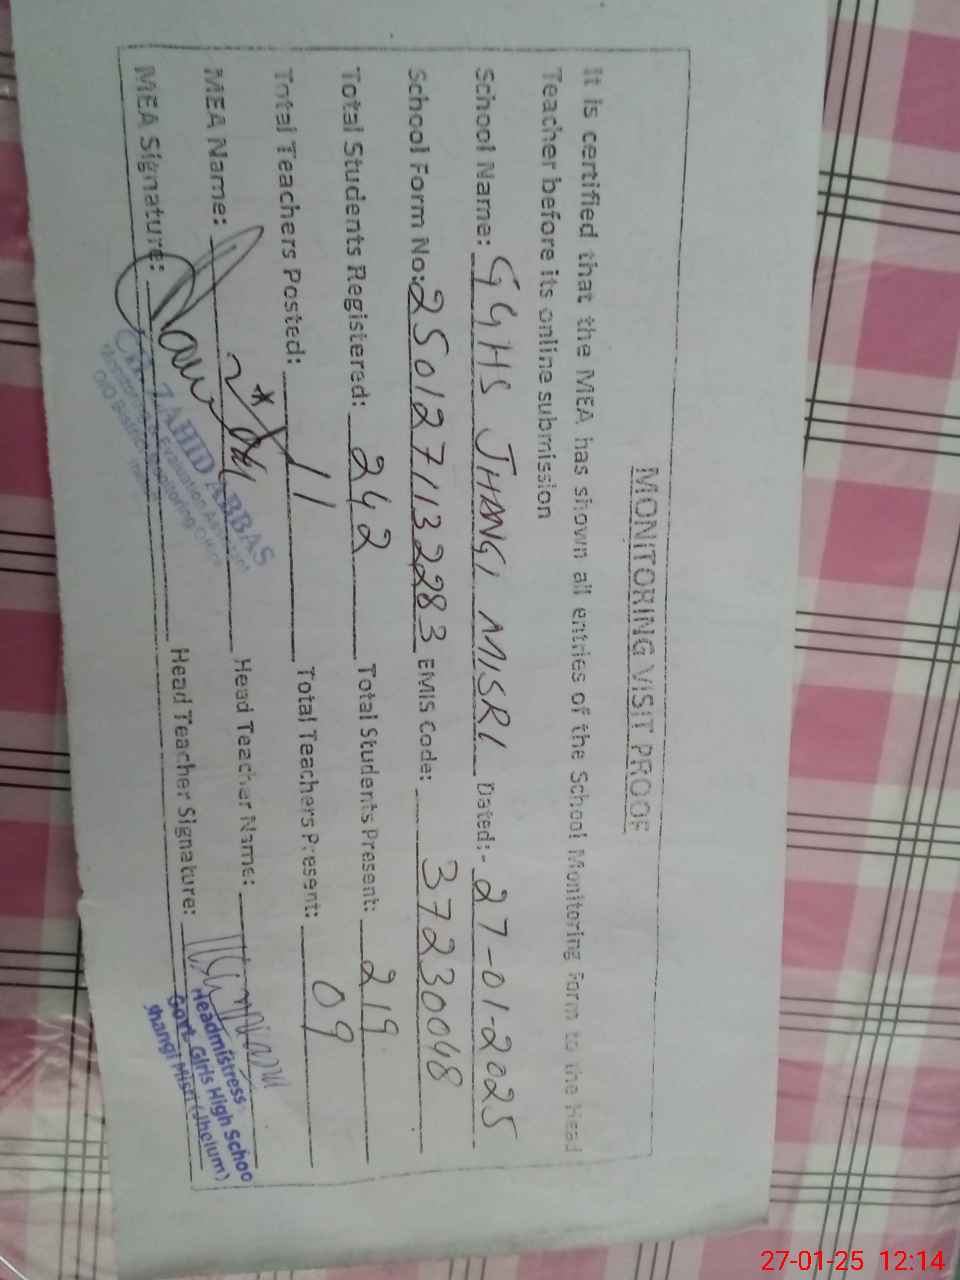 MONITORING VISIT PROOF
It is certified that the MEA has shown all entries of the School Monitoring Form to the Head
Teacher before its online submission
School Name: GGHS JHANGI MISRI Dated:- 27-01-2025
School Form No: 2501271132283 EMIS Code: 37230048
Total Students Registered: 242 Total Students Present: 219
Total Teachers Posted: 11 Total Teachers Present: 09
MEA Name: Head Teacher Name:
MEA Signature: Head Teacher Signature:
ZAHID ABBAS
Monitoring & Evaluation Assistant
O/O District Monitoring Officer
Headmistress
Govt. Girls High Schoo
Jhangi Misri (Jhelum)
27-01-25 12:14